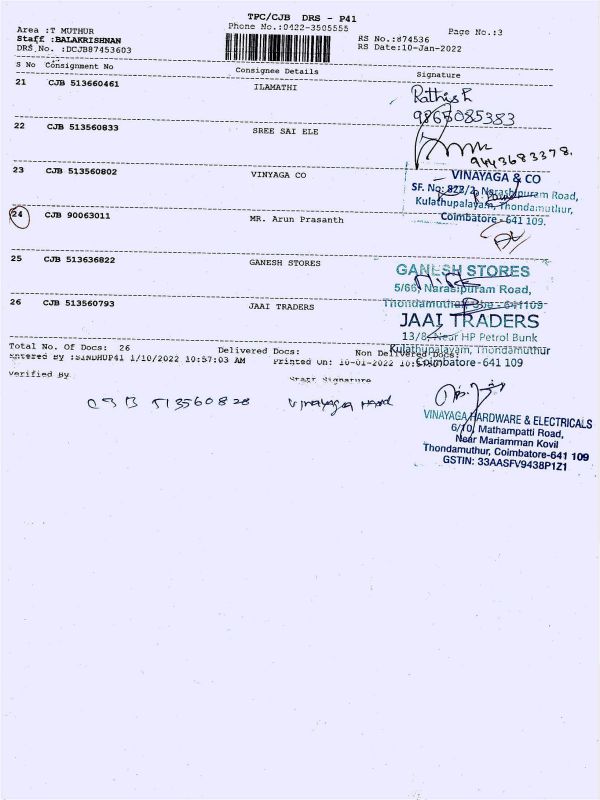 TPC/CJB DRS - P41
Area :T MUTHUR Phone No.:0422-3505555 Page No.:3
Staff :BALAKRISHNAN RS No.:874536
DRS No. :DCJB87453603 RS Date:10-Jan-2022
S No Consignment No Consignee Details Signature
21 CJB 513660461 ILAMATHI Rathish
9865085383
22 CJB 513560833 SREE SAI ELE
9443683378.
23 CJB 513560802 VINYAGA CO
VINAYAGA & CO
SF. No: 823/2, Narasipuram Road,
Kulathupalayam, Thondamuthur,
Coimbatore - 641 109.
24 CJB 90063011 MR. Arun Prasanth
25 CJB 513636822 GANESH STORES
GANESH STORES
5/66, Narasipuram Road,
Thondamuthur
26 CJB 513560793 JAAI TRADERS
JAAI TRADERS
13/8, Near HP Petrol Bunk
Kulathupalayam, Thondamuthur
Coimbatore - 641 109
Total No. Of Docs: 26 Delivered Docs: Non Delivered Docs:
Entered By :SINDHUP41 1/10/2022 10:57:03 AM Printed On: 10-01-2022
Verified By Staff Signature
CJB 513560828 Vinayaga Hard
VINAYAGA HARDWARE & ELECTRICALS
6/10, Mathampatti Road,
Near Mariamman Kovil
Thondamuthur, Coimbatore-641 109
GSTIN: 33AASFV9438P1Z1